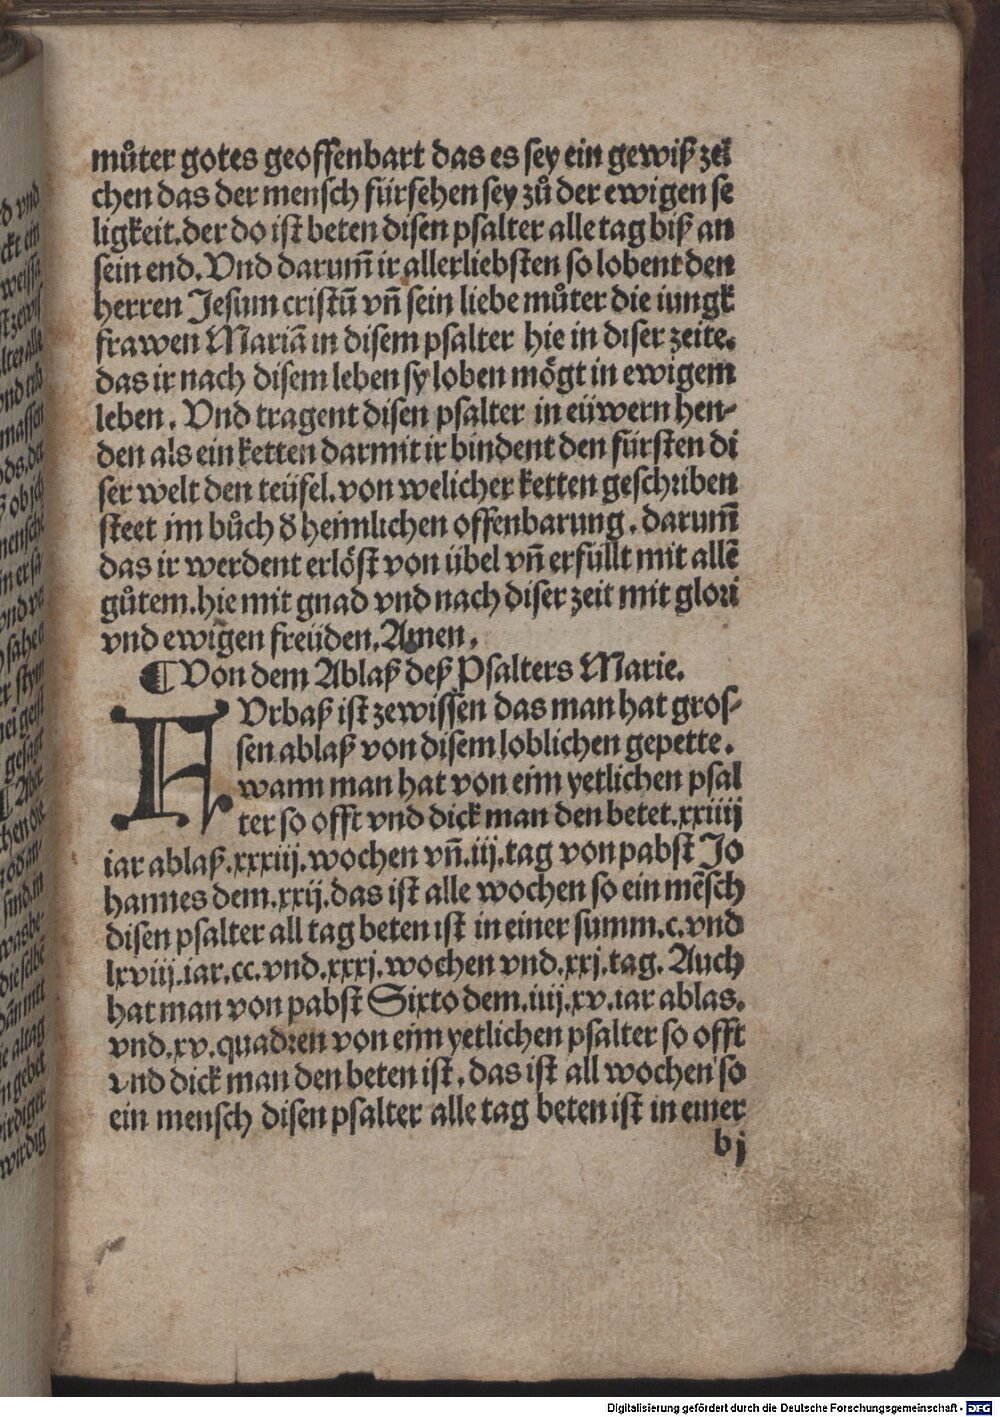 můter gotes geoffenbart das es sey ein gewiß zei
chen das der mensch fürsehen sey zů der ewigen se
ligkeit.der do ist beten disen psalter alle tag biß an
sein end. Vnd darum̄ ir allerliebsten so lobent den
herren Jesum cristū vn̄ sein liebe můter die iungk
frawen Mariā in disem psalter hie in diser zeite.
das ir nach disem leben sy loben mögt in ewigem
leben. Vnd tragent disen psalter in eüwern hen-
den als ein ketten darmit ir bindent den fürsten di
ser welt den teüfel.von welicher ketten geschriben
steet im bůch d̕ heimlichen offenbarung. darum̄
das ir werdent erlöst von übel vn̄ erfüllt mit allē
gůtem.hie mit gnad vnd nach diser zeit mit glori
vnd ewigen freüden. Amen.
¶ Von dem Ablaß deß Psalters Marie.
FVrbaß ist zewissen das man hat gros-
sen ablaß von disem loblichen gepette.
wann man hat von eim yetlichen psal
ter so offt vnd dick man den betet.xxiiij
iar ablaß.xxxiij.wochen vn̄.iij.tag von pabst Jo
hannes dem.xxij.das ist alle wochen so ein mēsch
disen psalter all tag beten ist in einer summ.c.vnd
lxviij.iar.cc.vnd.xxxj.wochen vnd.xxj.tag. Auch
hat man von pabst Sixto dem.iiij.xv.iar ablas.
vnd.xv.quadren von eim yetlichen psalter so offt
vnd dick man den beten ist. das ist all wochen so
ein mensch disen psalter alle tag beten ist in einer
bj
Digitalisierung gefördert durch die Deutsche Forschungsgemeinschaft - DFG